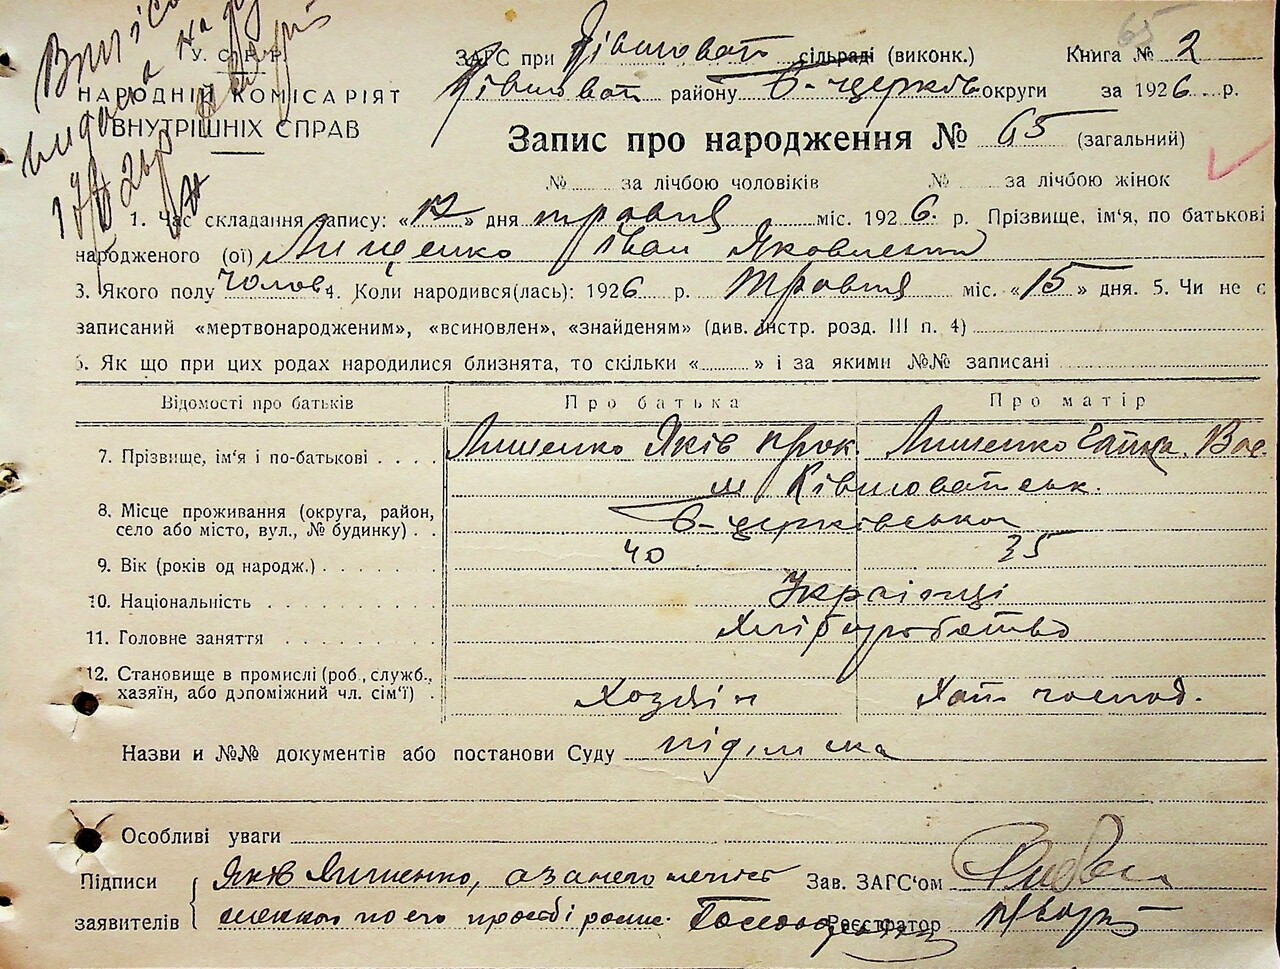 65
У. С. Р. Р.
НАРОДНІЙ КОМІСАРІЯТ
ВНУТРІШНІХ СПРАВ
ЗАГС при Ківшоват. сільраді (виконк.) Книга № 2
Ківшоват. району Б-церків округи за 1926 р.
Запис про народження № 65 (загальний)
№ за лічбою чоловіків № за лічбою жінок
1. Час складання запису: «17» дня травня міс. 1926. р. Прізвище, ім'я, по батькові
народженого (ої) Лищенко Іван Яковлевич
3. Якого полу чолов. 4. Коли народився(лась): 1926 р. травня міс. «15» дня. 5. Чи не є
записаний «мертвонародженим», «всиновлен», «знайденям» (див. інстр. розд. III п. 4)
6. Як що при цих родах народилися близнята, то скільки « » і за якими №№ записані
Відомості про батьків Про батька Про матір
7. Прізвище, ім'я і по-батькові Лищенко Яків Прок. Лищенко Гапка. Вас.
8. Місце проживання (округа, район, м Ківшоватськ.
село або місто, вул., № будинку) Б-церківської
9. Вік (років од народж.) 40 35
10. Національність Українці
11. Головне заняття Хліборобство
12. Становище в промислі (роб., служб.,
хазяїн, або допоміжний чл. сім'ї) Хозяїн Хатн господ.
Назви и №№ документів або постанови Суду підписка
Особливі уваги
Підписи Яків Лищенко, а за него Зав. ЗАГС'ом
заявителів по его просьбі роспис. Реєстратор